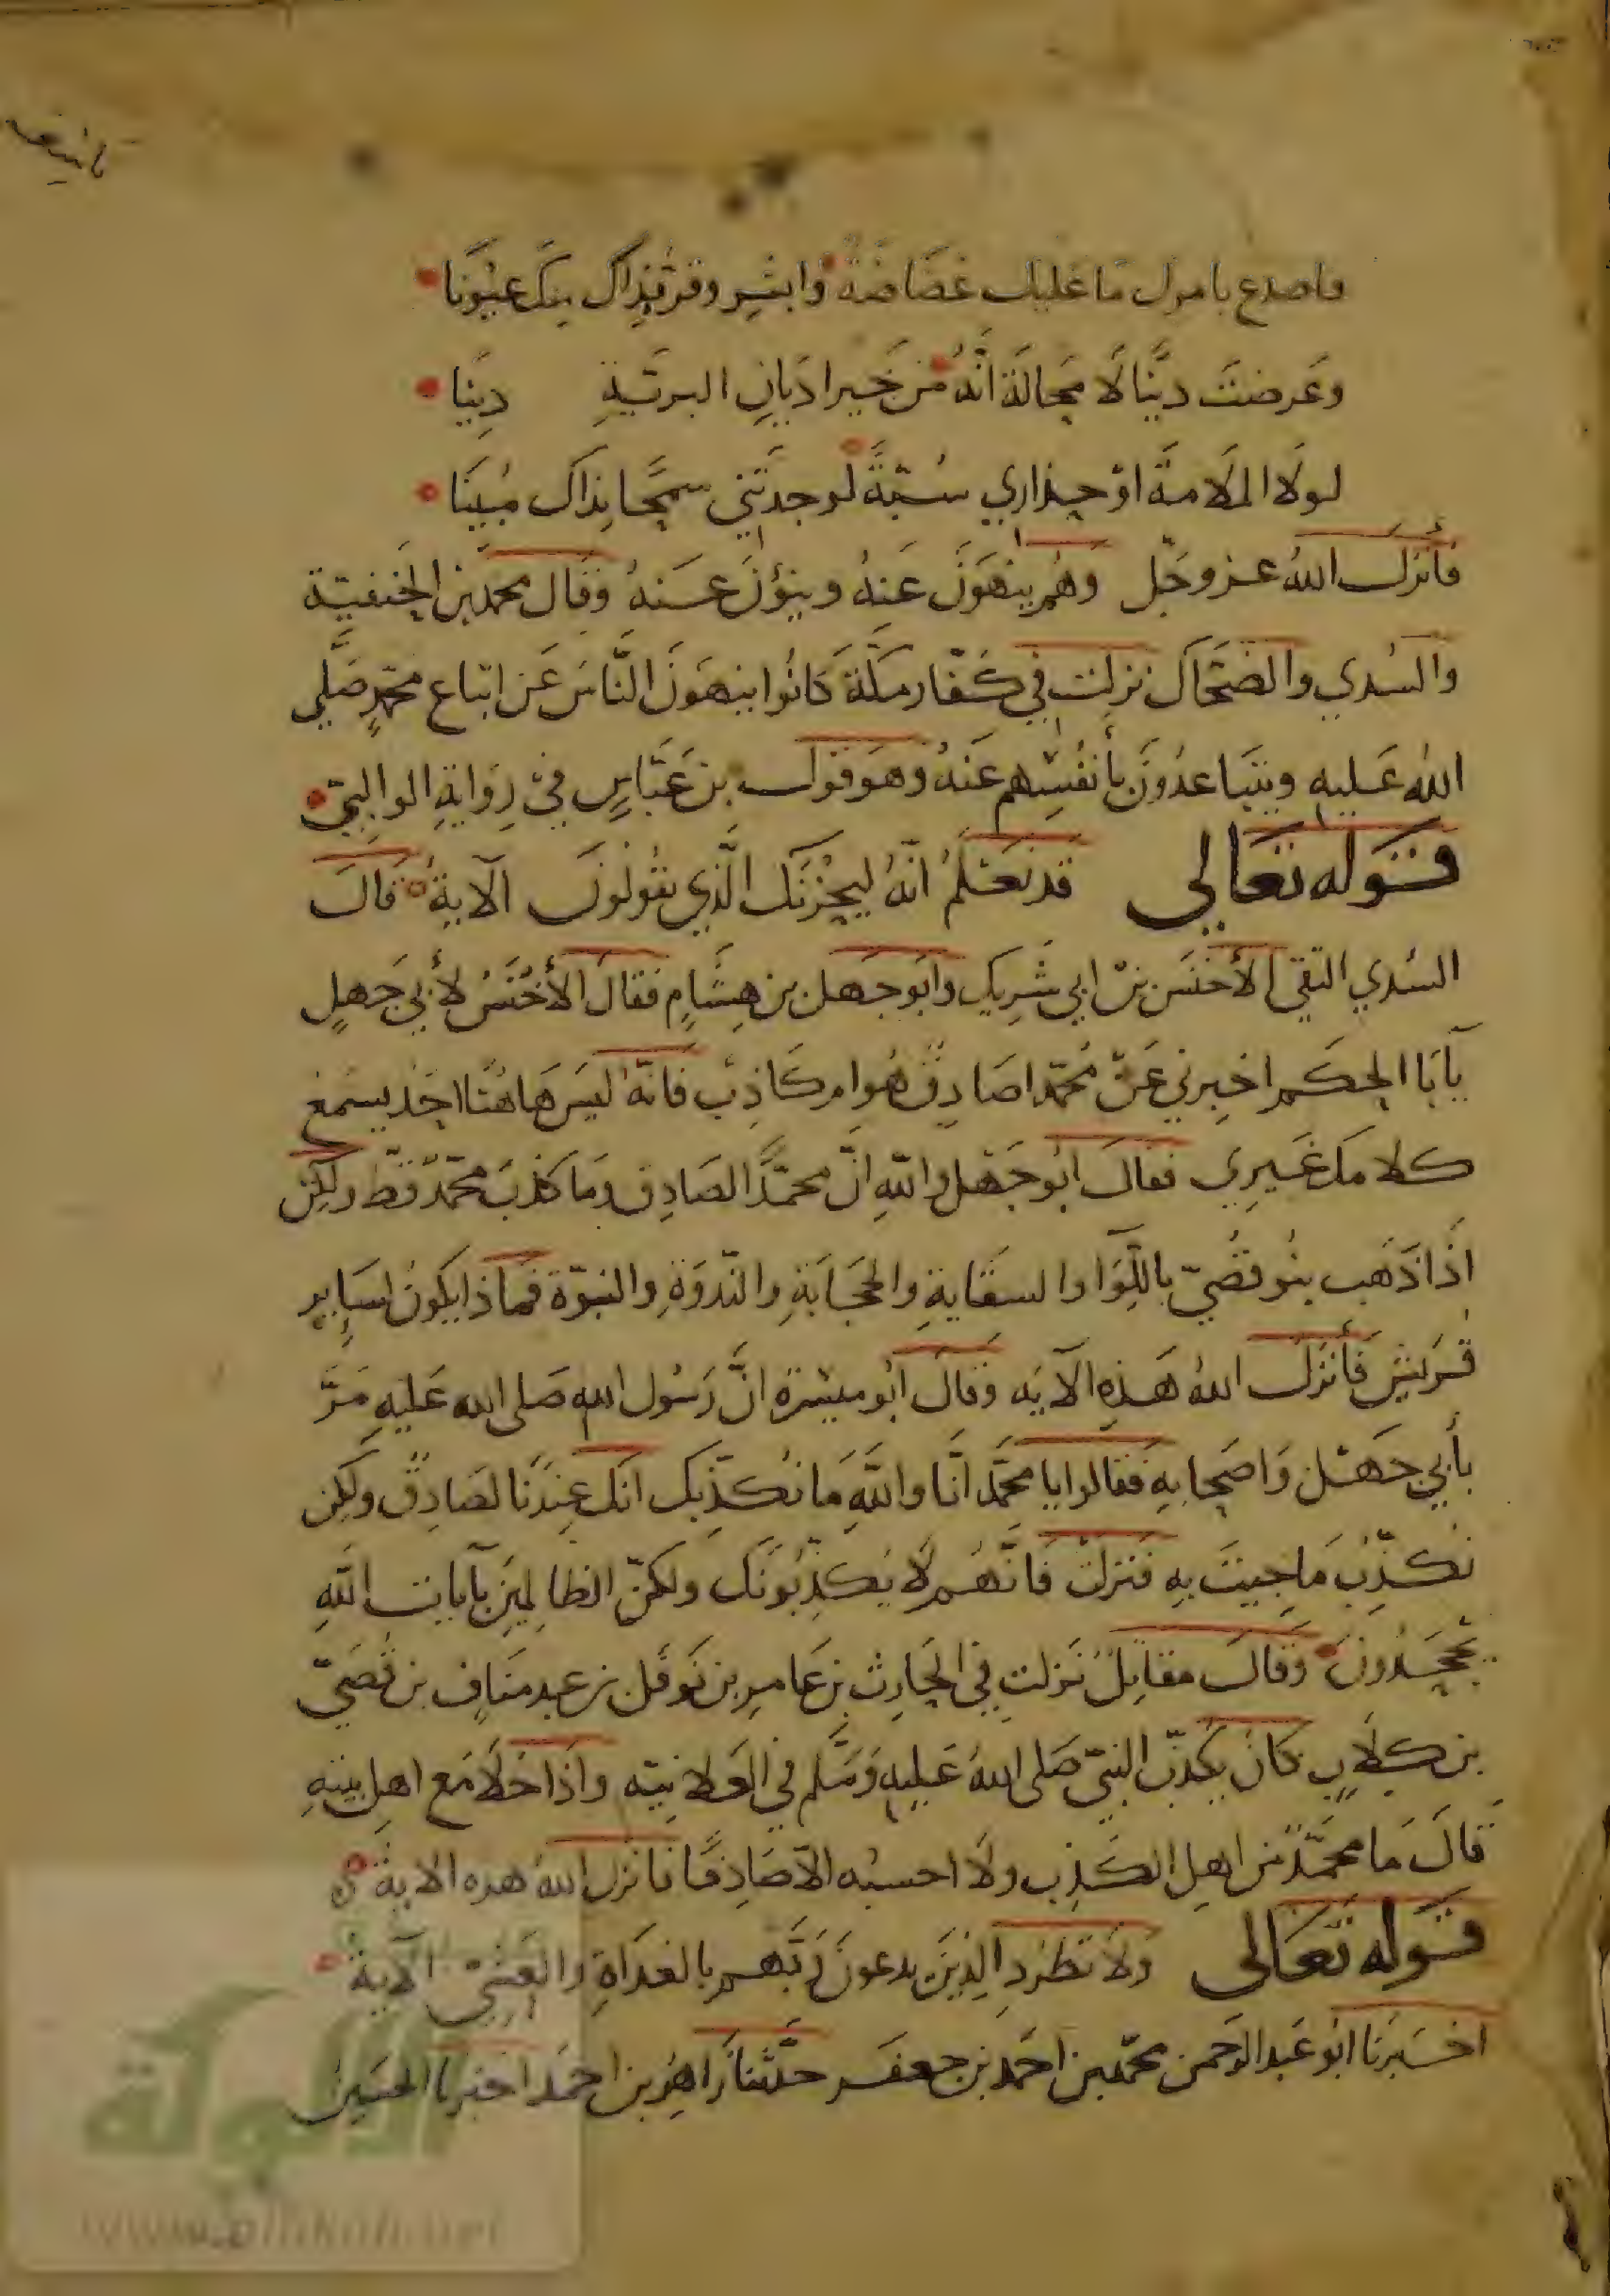 فاصدع بامرك ما عليك غضاضة وابشر وقر بذاك منك عيونا
وعرضت دينا لا محالة انه من خير اديان البرية دينا
لولا الملامة او حذاري سبة لوجدتني سمحا بذاك مبينا
فأنزل الله عز وجل وهم ينهون عنه وينؤن عنه وقال محمد بن الحنفية
والسدي والضحاك نزلت في كفار مكة كانوا ينهون الناس عن اتباع محمد صلى
الله عليه ويتباعدون بأنفسهم عنه وهو قول بن عباس في رواية الوالبي
قوله تعالى قد نعلم انه ليحزنك الذي يقولون الآية قال
السدي التقى الأخنس بن ابي شريك وابو جهل بن هشام فقال الأخنس لأبي جهل
يآبا الحكم اخبرني عن محمد اصادق هو ام كاذب فانه ليس هاهنا احد يسمع
كلامك غيري فقال ابو جهل والله ان محمدا الصادق وما كذب محمد قط ولكن
اذا ذهب بنو قصي باللوا والسقاية والحجابة والندوة والنبوة فماذا يكون لساير
قريش فأنزل الله هذه الآيه وقال ابو ميسرة ان رسول الله صلى الله عليه مر
بأبي جهل واصحابه فقالوا يا محمد انا والله ما نكذبك انك عندنا لصادق ولكن
نكذب ما جيت به فنزلت فانهم لا يكذبونك ولكن الظالمين بآيات الله
يجحدون وقال مقاتل نزلت في الحارث بن عامر بن نوفل بن عبد مناف بن قصي
بن كلاب كان يكذب النبي صلى الله عليه وسلم في العلانية واذا خلا مع اهل بيته
قال ما محمد من اهل الكذب ولا احسبه الا صادقا فانزل الله هذه الاية
قوله تعالى ولا تطرد الذين يدعون ربهم بالغداة والعشي الآية
اخبرنا ابو عبد الرحمن محمد بن احمد بن جعفر حدثنا زاهر بن احمد اخبرنا الحسين
الألوكة
www.alukah.net